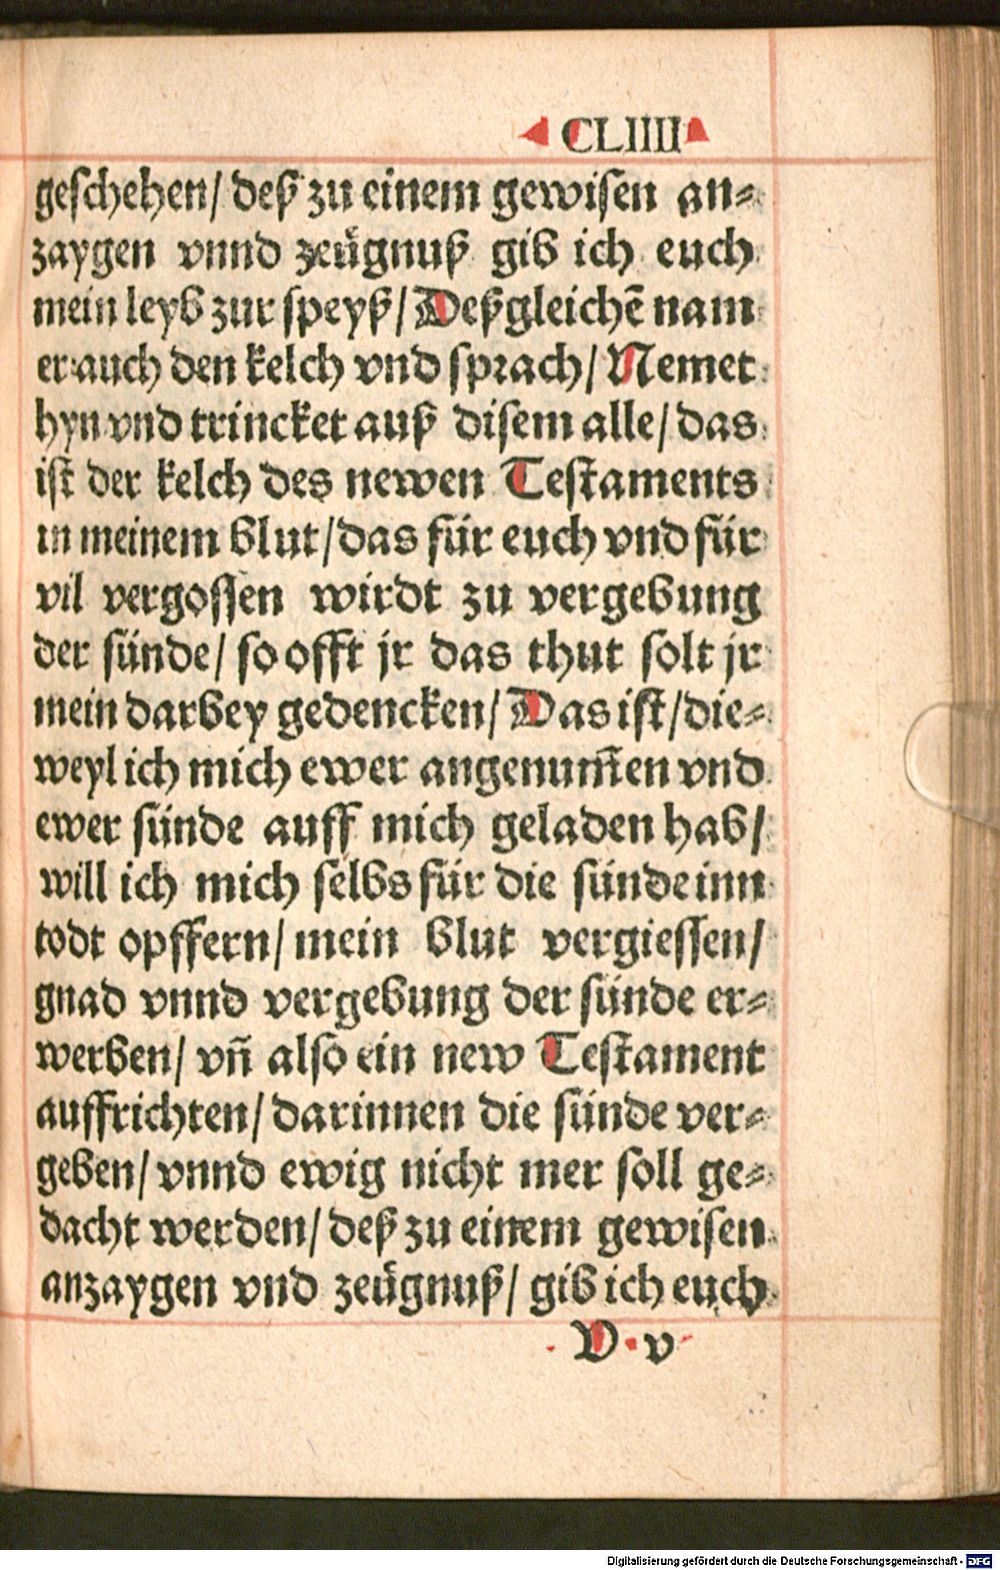 CLIIII
geschehen/ deß zu einem gewisen an⸗
zaygen vnnd zeügnuß gib ich euch
mein leyb zur speyß/ Deßgleichē nam
er auch den kelch vnd sprach/ Nemet
hyn vnd trincket auß disem alle/ das
ist der kelch des newen Testaments
in meinem blut/ das für euch vnd für
vil vergossen wirdt zu vergebung
der sünde/ so offt jr das thut solt jr
mein darbey gedencken/ Das ist/ die⸗
weyl ich mich ewer angenum̄en vnd
ewer sünde auff mich geladen hab/
will ich mich selbs für die sünde inn
todt opffern/ mein blut vergiessen/
gnad vnnd vergebung der sünde er⸗
werben/ vn̄ also ein new Testament
auffrichten/ darinnen die sünde ver⸗
geben/ vnnd ewig nicht mer soll ge⸗
dacht werden/ deß zu einem gewisen
anzaygen vnd zeügnuß/ gib ich euch
V v
Digitalisierung gefördert durch die Deutsche Forschungsgemeinschaft - DFG